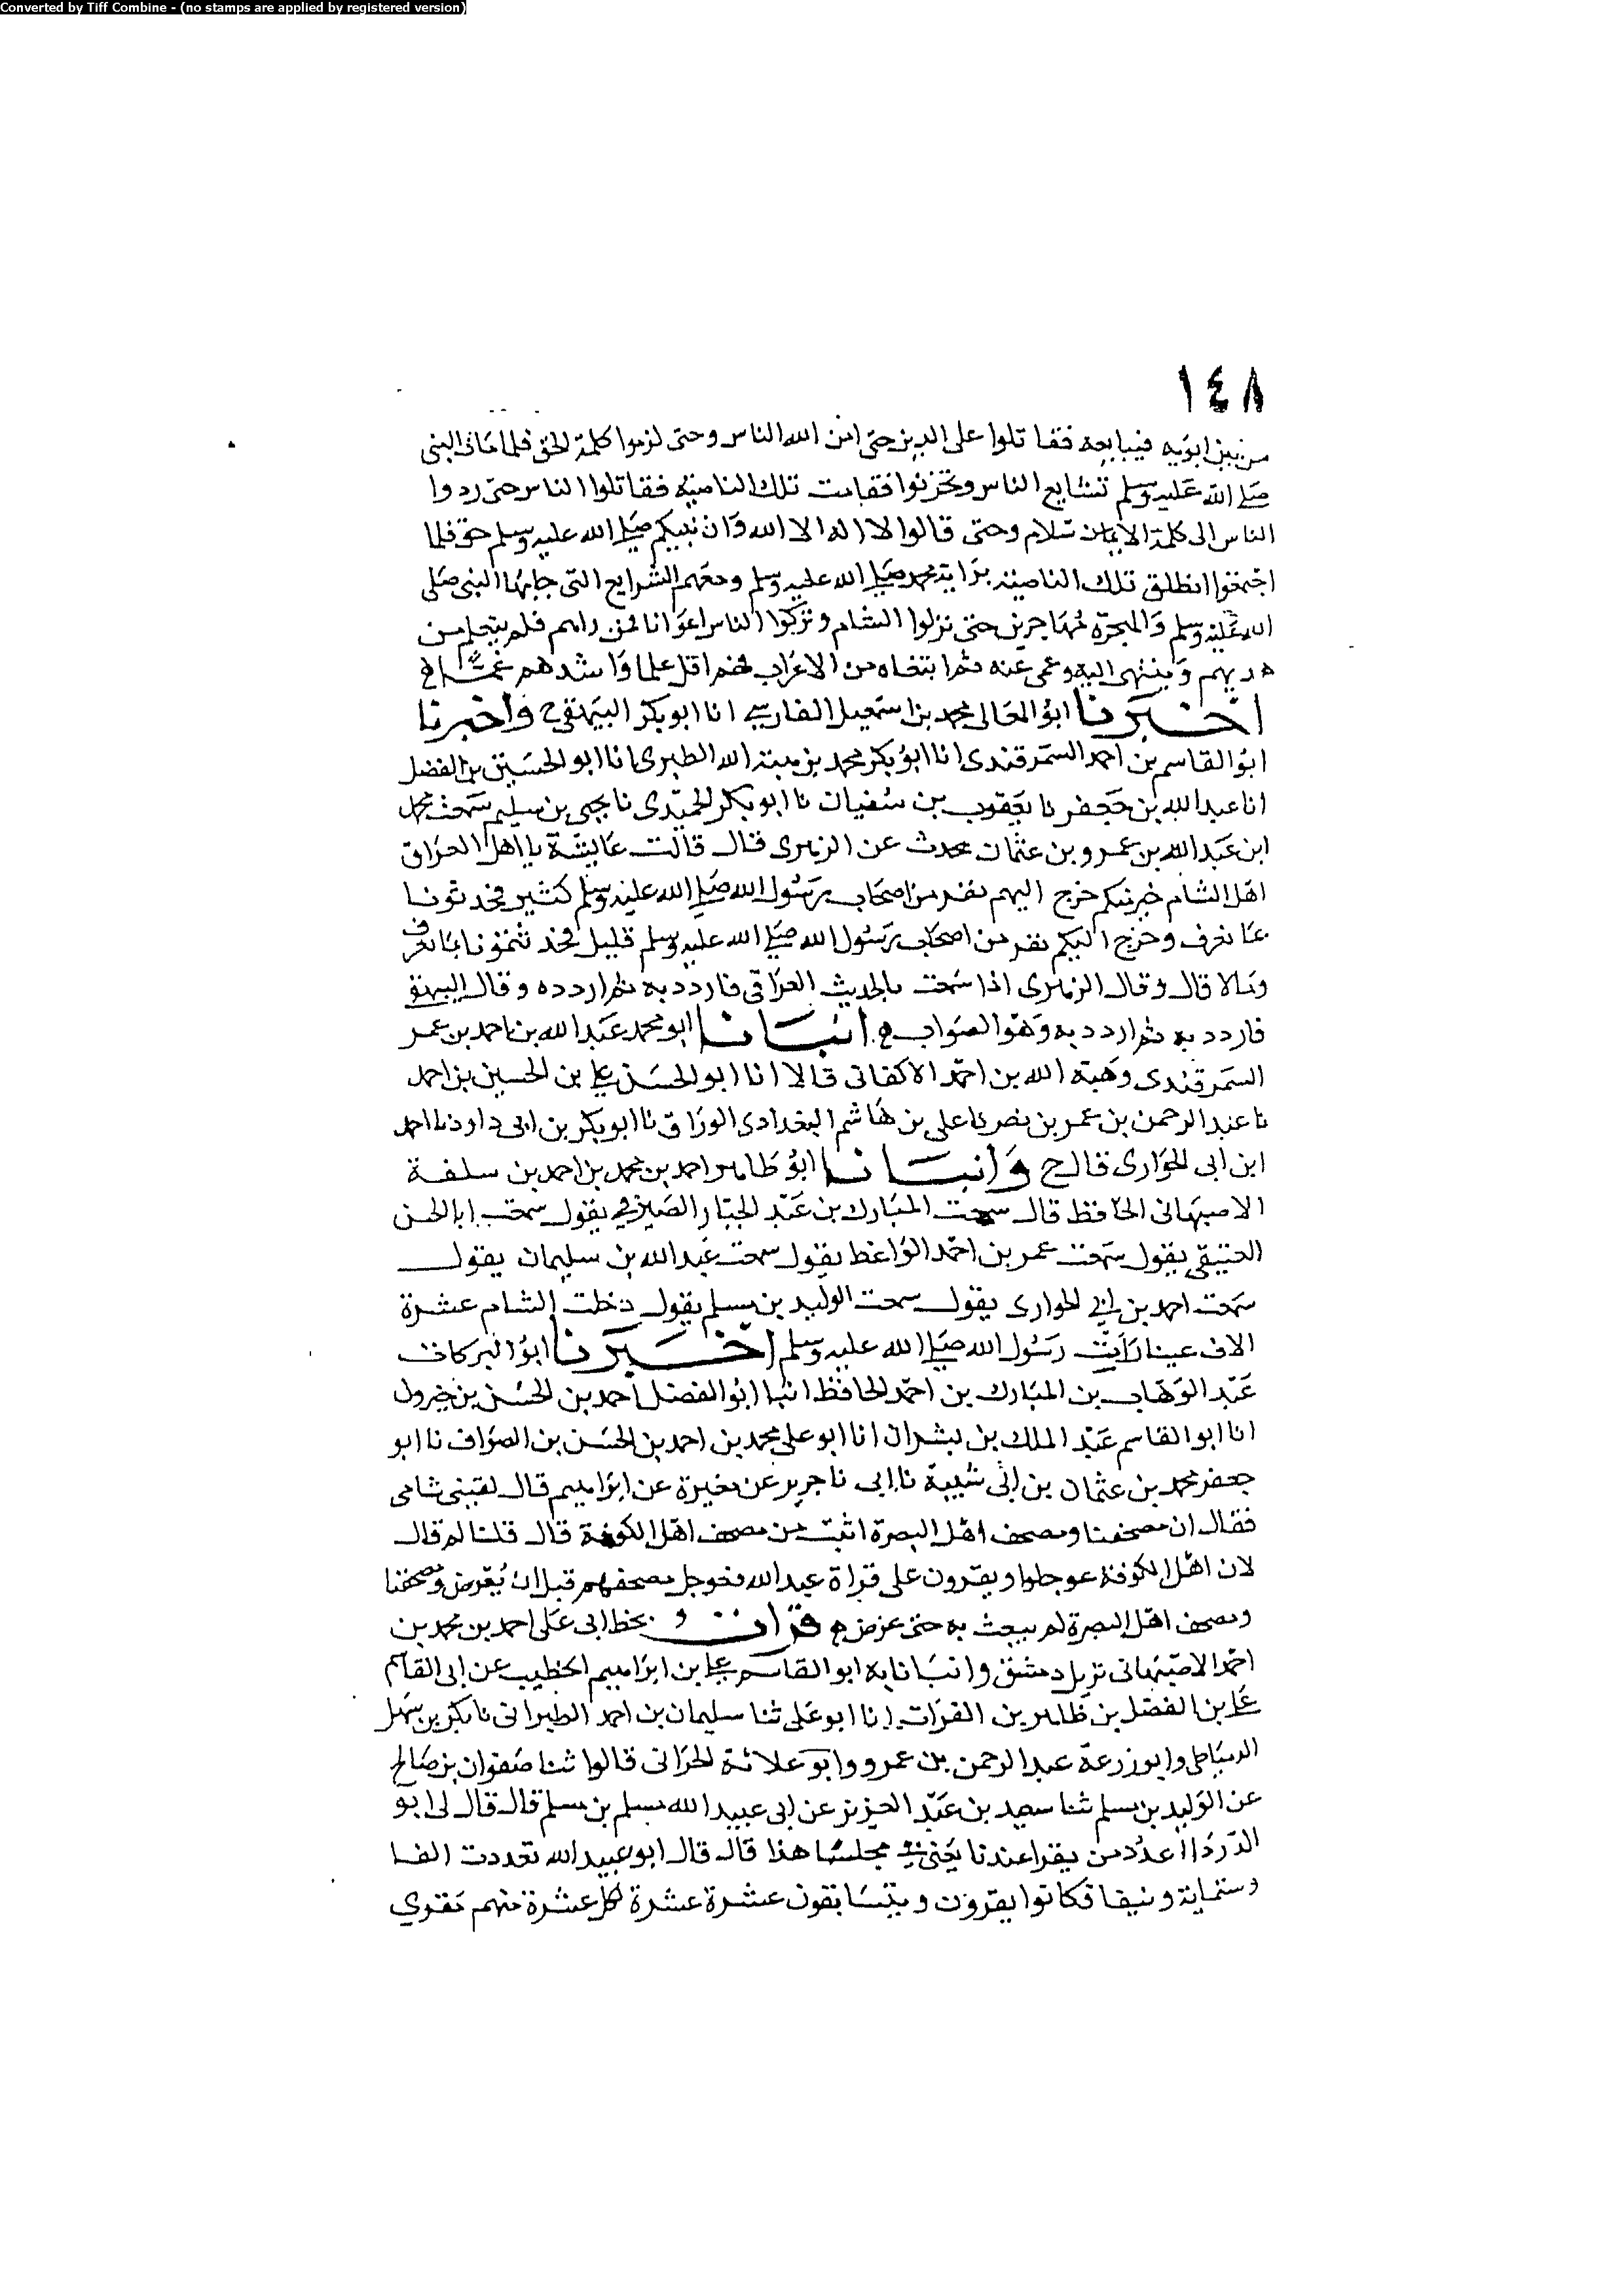 Converted by Tiff Combine - (no stamps are applied by registered version)
١٤٨
من بين ابويه فيبايعه فقاتلوا على الدين حتى امن الله الناس وحتى لزموا كلمة الحق فلما مات النبى
صلى الله عليه وسلم تشايع الناس وتحزبوا فقامت تلك الناصية فقاتلوا الناس حتى ردوا
الناس الى كلمة الاسلام وحتى قالوا لا اله الا الله وان نبيكم صلى الله عليه وسلم حق فلما
اجتمعوا انطلق تلك الناصية براية محمد صلى الله عليه وسلم ومعهم الشرايع التى جابها النبى صلى
الله عليه وسلم والهجرة مهاجرين حتى نزلوا الشام وتركوا الناس اعوانا فمن راهم فلم يتعلم من
هديهم وينتهى اليه وعمى عنه ثم ابتغاه من الاعراب فهم اقل علما واشدهم
اخبرنا ابو المعالى محمد بن اسمعيل الفارسي انا ابو بكر البيهقي ح واخبرنا
ابو القاسم بن احمد السمرقندى انا ابو بكر محمد بن هبة الله الطبرى انا ابو الحسين بن الفضل
انا عبد الله بن جعفر نا يعقوب بن سفيان نا ابو بكر الحميدى نا يحيى بن سليم سمعت محمد
ابن عبد الله بن عمرو بن عثمان يحدث عن الزهرى قال قالت عايشة يا اهل العراق
اهل الشام خير منكم خرج اليهم نفر من اصحاب رسول الله صلى الله عليه وسلم كثير فحدثونا
بما نعرف وخرج اليكم نفر من اصحاب رسول الله صلى الله عليه وسلم قليل فحدثتمونا بما نعرف
ومالا قال وقال الزهرى اذا سمعت بالحديث العراقى فاردد به ثم اردده وقال البيهقي
فاردد به ثم اردد به وهو الصواب انبانا ابو محمد عبد الله بن احمد بن عمر
السمرقندى وهبة الله بن احمد الاكفانى قالا انا ابو الحسن علي بن الحسين بن احمد
نا عبد الرحمن بن عمر بن نصر نا على بن هاشم البغدادى الوراق نا ابو بكر بن ابى داود نا احمد
ابن ابى الحوارى قال ح وانبانا ابو طاهر احمد بن محمد بن احمد بن سلفة
الاصبهانى الحافظ قال سمعت المبارك بن عبد الجبار الصيرفي يقول سمعت ابا الحسن
العتيقى يقول سمعت عمر بن احمد الواعظ يقول سمعت عبد الله بن سليمان يقول
سمعت احمد بن ابي الحوارى يقول سمعت الوليد بن مسلم يقول دخلت الشام عشرة
الاف عين رات رسول الله صلى الله عليه وسلم اخبرنا ابو البركات
عبد الوهاب بن المبارك بن احمد الحافظ انبا ابو الفضل احمد بن الحسن بن خيرون
انا ابو القاسم عبد الملك بن بشران انا ابو على محمد بن احمد بن الحسن بن الصواف نا ابو
جعفر محمد بن عثمان بن ابى شيبة نا ابى نا جرير عن مغيرة عن ابراهيم قال لقينى شامى
فقال ان مصحفنا ومصحف اهل البصرة اثبت من مصحف اهل الكوفة قال قلت لم قال
لان اهل الكوفة عوجلوا ويقرون على قراة عبد الله فعوجل مصحفهم قبل ان يعرض ومصحفنا
ومصحف اهل البصرة لم يبعث به حتى عرض قرات بخط ابى على احمد بن محمد بن
احمد الاصبهانى نزيل دمشق وانبانا به ابو القاسم علي بن ابراهيم الخطيب عن ابى القاسم
علي بن الفضل بن طاهر بن الفرات انا ابو على ثنا سليمان بن احمد الطبرانى نا بكر بن سهل
الدمياطى وابو زرعة عبد الرحمن بن عمرو وابو علاثة الحرانى قالوا ثنا صفوان بن صالح
عن الوليد بن مسلم ثنا سعيد بن عبد العزيز عن ابى عبيد الله مسلم بن مسلم قال قال لى ابو
الدردا اعدد من يقرا عندنا يعنى في مجلسنا هذا قال قال ابو عبيد الله فعددت الفا
وستماية ونيفا فكانوا يقرون ويتسابقون عشرة عشرة لكل عشرة منهم مقرى